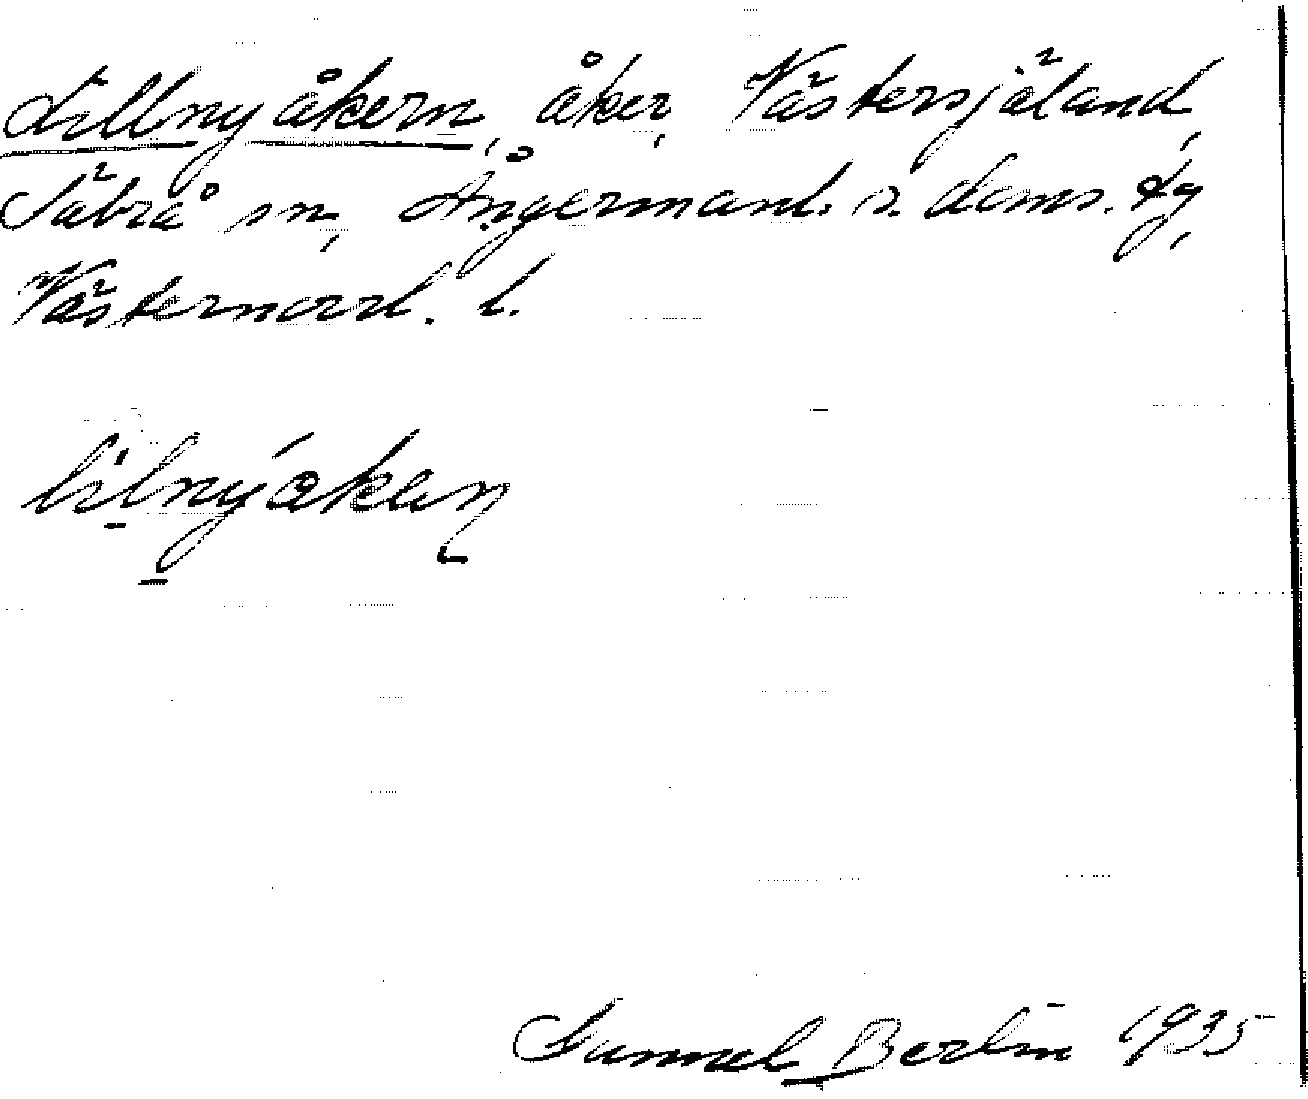 Lillnyåkern, åker, Västersjäland,
Säbrå sn, Ångermanl. s. doms. dg,
Västernorrl. l.
lilnyåkeṇ
Gunnel Berlin 1935